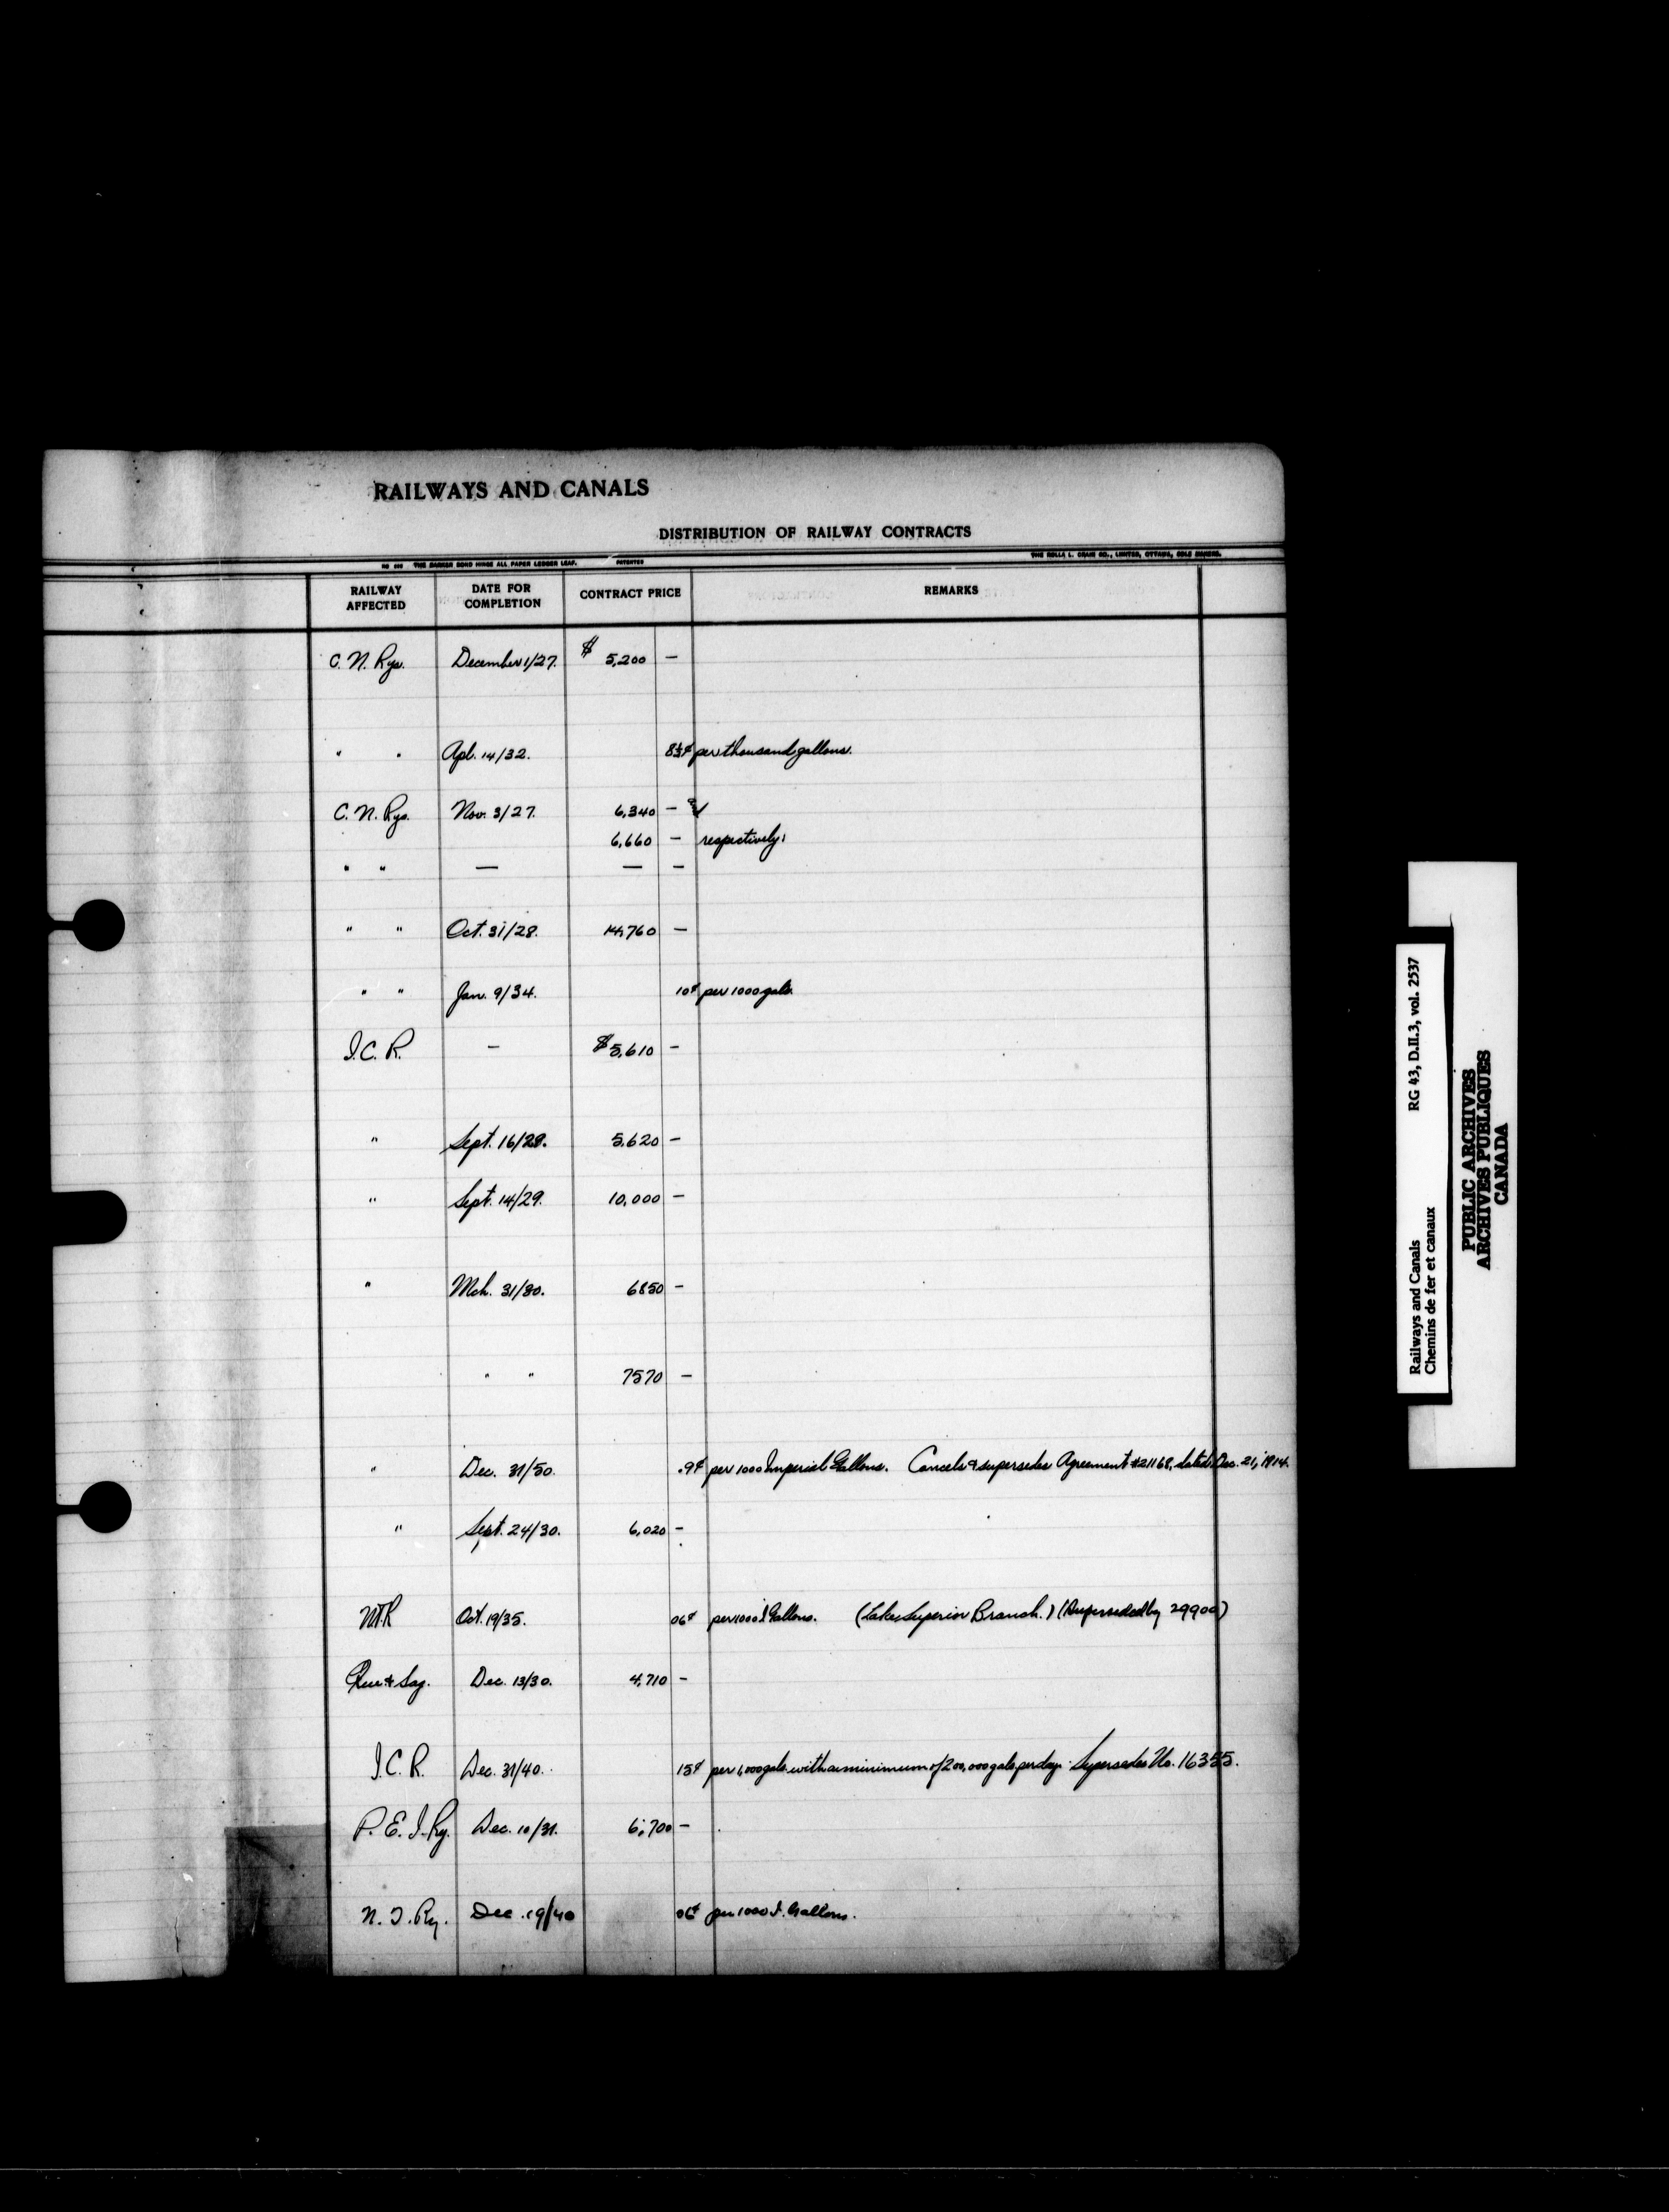 RAILWAYS AND CANALS
DISTRIBUTION OF RAILWAY CONTRACTS
THE ROLLA L. CRAIN CO., LIMITED, OTTAWA, SOLE MAKERS.
THE BARBER BOND HINGE ALL PAPER LEDGER LEAF. PATENTED
RAILWAY AFFECTED DATE FOR COMPLETION CONTRACT PRICE REMARKS
C. N. Rys. December 1/27. $ 5,200 —
" " Apl. 14/32. 8⅓¢ per thousand gallons.
C. N. Rys. Nov. 3/27. 6,340 — &
6,660 — respectively.
" " — — —
" " Oct. 31/28. 14,760 —
" " Jan. 9/34. 10¢ per 1000 gals.
I.C.R. — $5,610 —
" Sept. 16/28. 5,620 —
" Sept. 14/29. 10,000 —
" Mch. 31/30. 6850 —
" " 7570 —
" Dec. 31/50. .9¢ per 1000 Imperial Gallons. Cancels & supersedes Agreement #21168, dated Dec. 21, 1914.
" Sept. 24/30. 6,020 —
N.T.R Oct. 19/35. 06¢ per 1000 I Gallons. (Lake Superior Branch.) (Superseded by 29900)
Que & Sag. Dec. 13/30. 4,710 —
I.C.R. Dec. 31/40. 15¢ per 1,000 gals. with a minimum of 200,000 gals per day. Supersedes No. 16355.
P.E.I. Ry. Dec. 10/31. 6,700 —
N.T. Ry. Dec. 19/40 06¢ per 1000 I. Gallons.
Railways and Canals RG 43, D.II.3, vol. 2537
Chemins de fer et canaux
PUBLIC ARCHIVES
ARCHIVES PUBLIQUES
CANADA